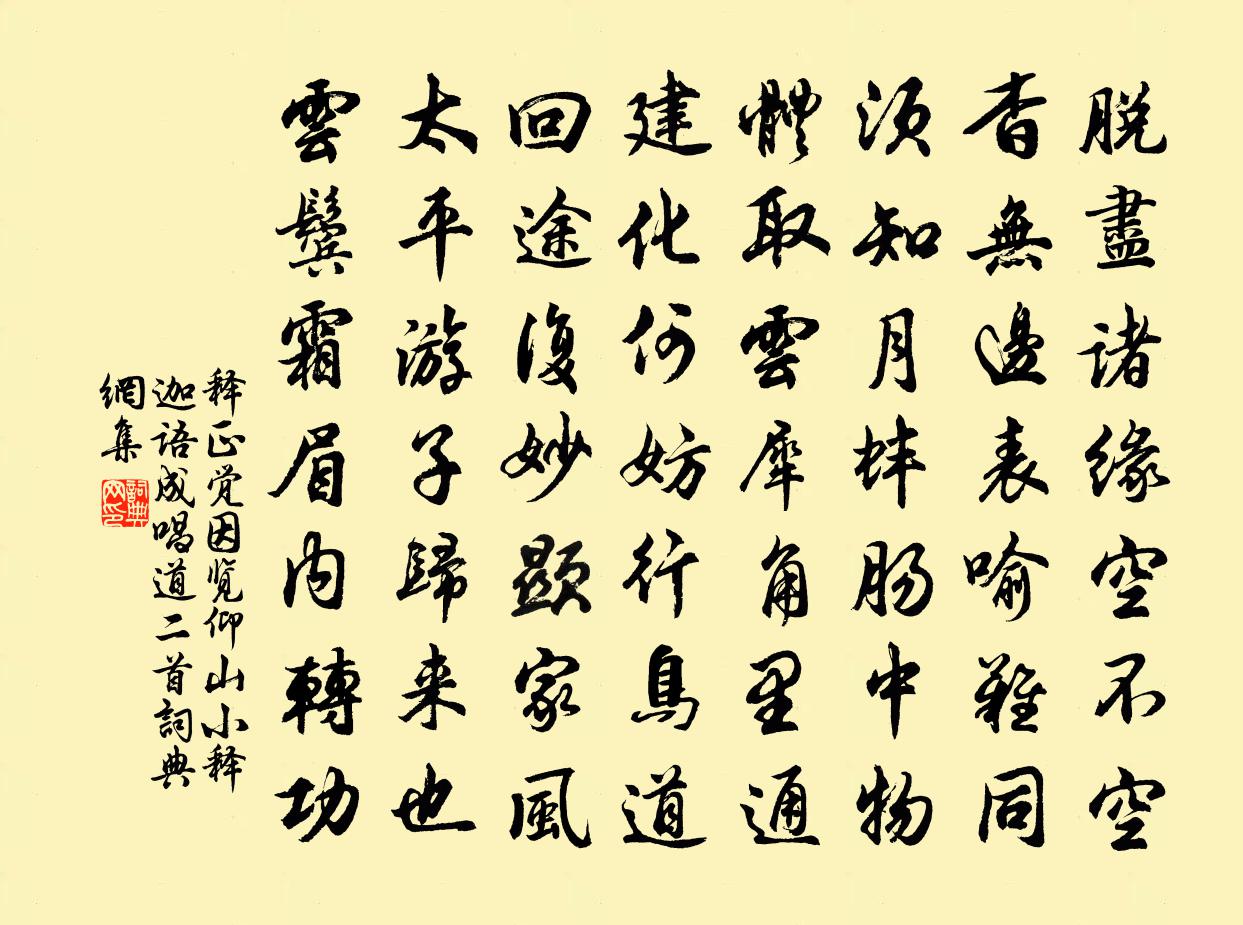 脱盡諸緣空不空
杳無邊表喻難同
須知月蚌腸中物
體取雲犀角里通
建化何妨行鳥道
回途復妙顯家風
太平游子歸来也
雲鬢霜眉内轉功
释正觉因览仰山小释
迦语成唱道二首詞典
網集
詞典
网印